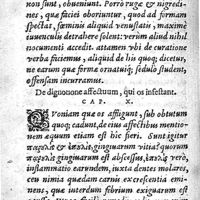 non sunt, obueniunt. Porrò rugæ & nigredi-
nes, quæ faciei oboriuntur, quod ad formam
spectat, fœminis aliquid venustatis, maximè
iuuenculis detrahere solent: verùm aliud nihil
documenti accedit. attamen vbi de curatione
verba faciemus, aliquid de his quoq; dicetur,
ne earum quæ formæ ornatuiq; sedulò student,
offensam incurramus.
De dignotione affectuum, qui os infestant.
CAP. X.
QVoniam quæ os affligunt, sub obtutum
quoq; cadunt, de eius affectibus mentio-
nem æquum etiam est hic fieri. Sunt igitur
παρουλὶς & ἐπουλὶς, gingiuarum vitia: quorum
παρουλὶς gingiuarum est abscessus, ἐπουλὶς verò,
inflammatio earundem, iuxta dentes molares,
ceu minuta quædam carnis excrescentia emi-
nens, quæ interdum febrium exiguarum est